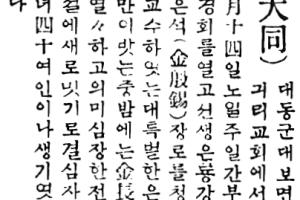 大同)
대동군대보면
거리교회에서
月十四일노일주일간부
경회를열고선생은룡강
은석(金殷錫)장로를청
교수하엿는대특별한은
만이밧는중밤에는金長
열々하고의미심장한전
결에새로밋기로결심자
녀四十여인이나생기엿
다